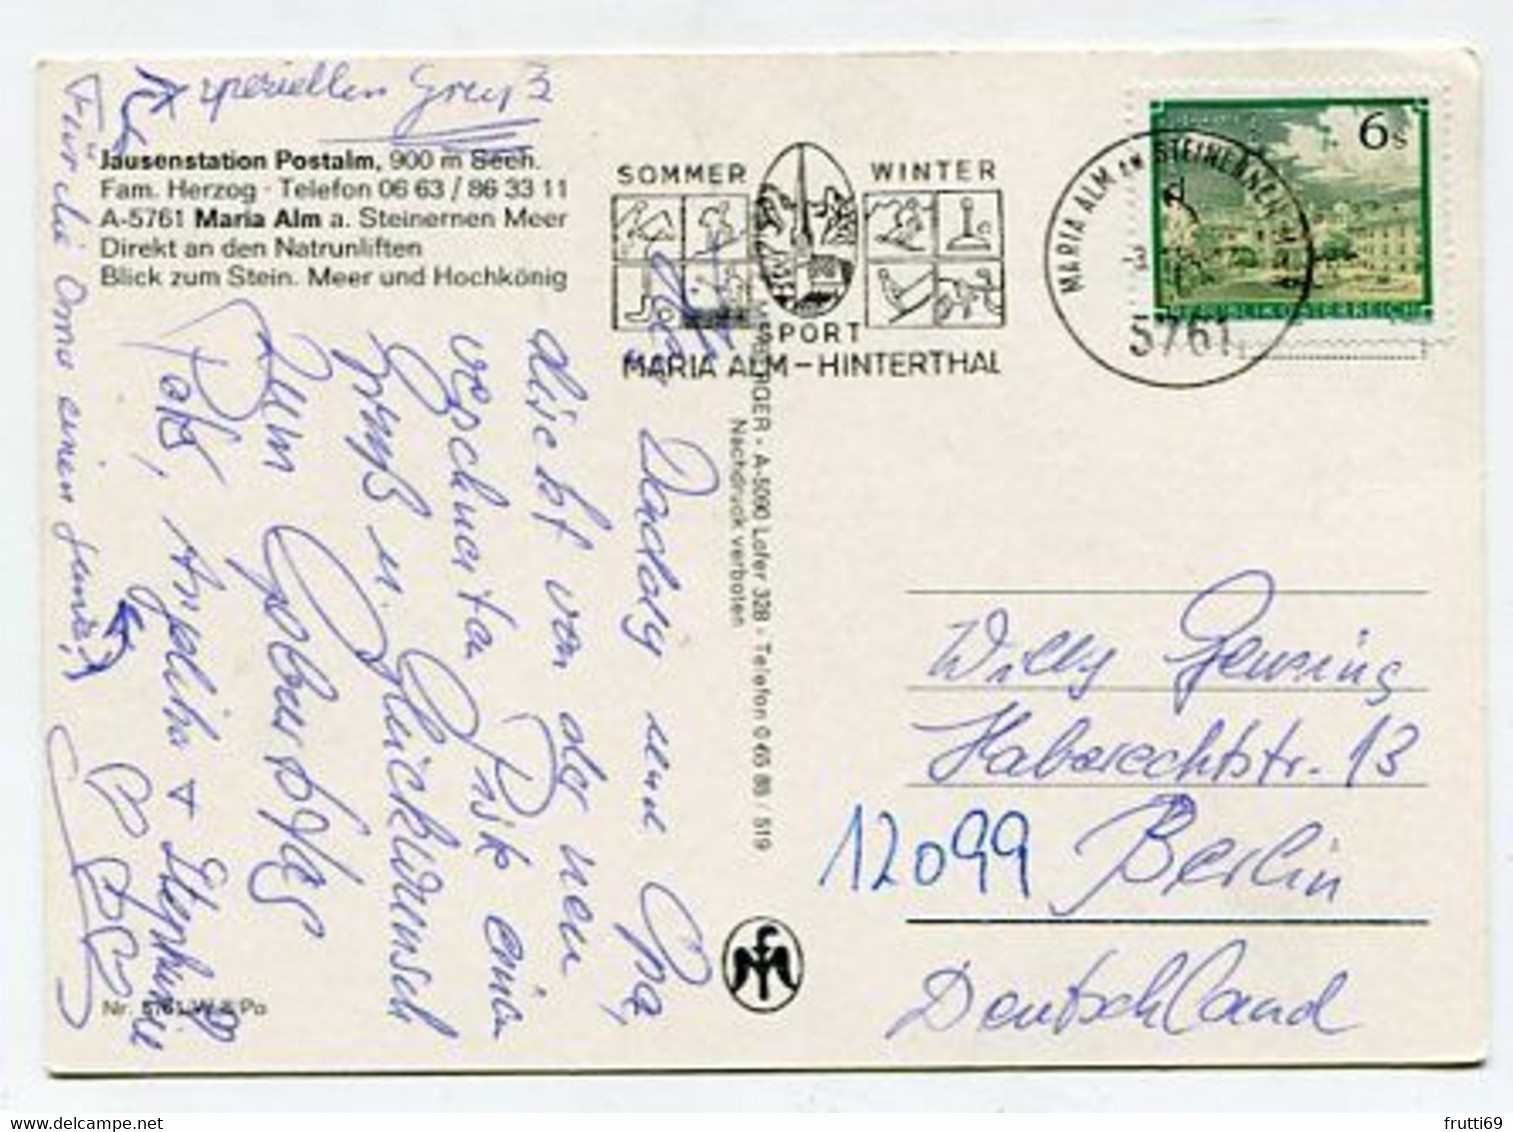 speziellen Gruß
Jausenstation Postalm, 900 m Seeh.
Fam. Herzog · Telefon 06 63 / 86 33 11
A-5761 Maria Alm a. Steinernen Meer
Direkt an den Natrunliften
Blick zum Stein. Meer und Hochkönig
Für die Oma einen
Daddy und Opa,
direkt von der neu
verschneiten Piste einen
Gruß u. Glückwunsch
zum Geburtstag
+ Stephanie
Nr.
SOMMER WINTER
SPORT
MARIA ALM – HINTERTHAL
A-5090 Lofer 328 - Telefon 0 65 88 / 519
Nachdruck verboten
6 s
REPUBLIK ÖSTERREICH
MARIA ALM AM STEINERNEN MEER
5761
Willy Gensing
Haberechtstr. 13
12099 Berlin
Deutschland
frutti69